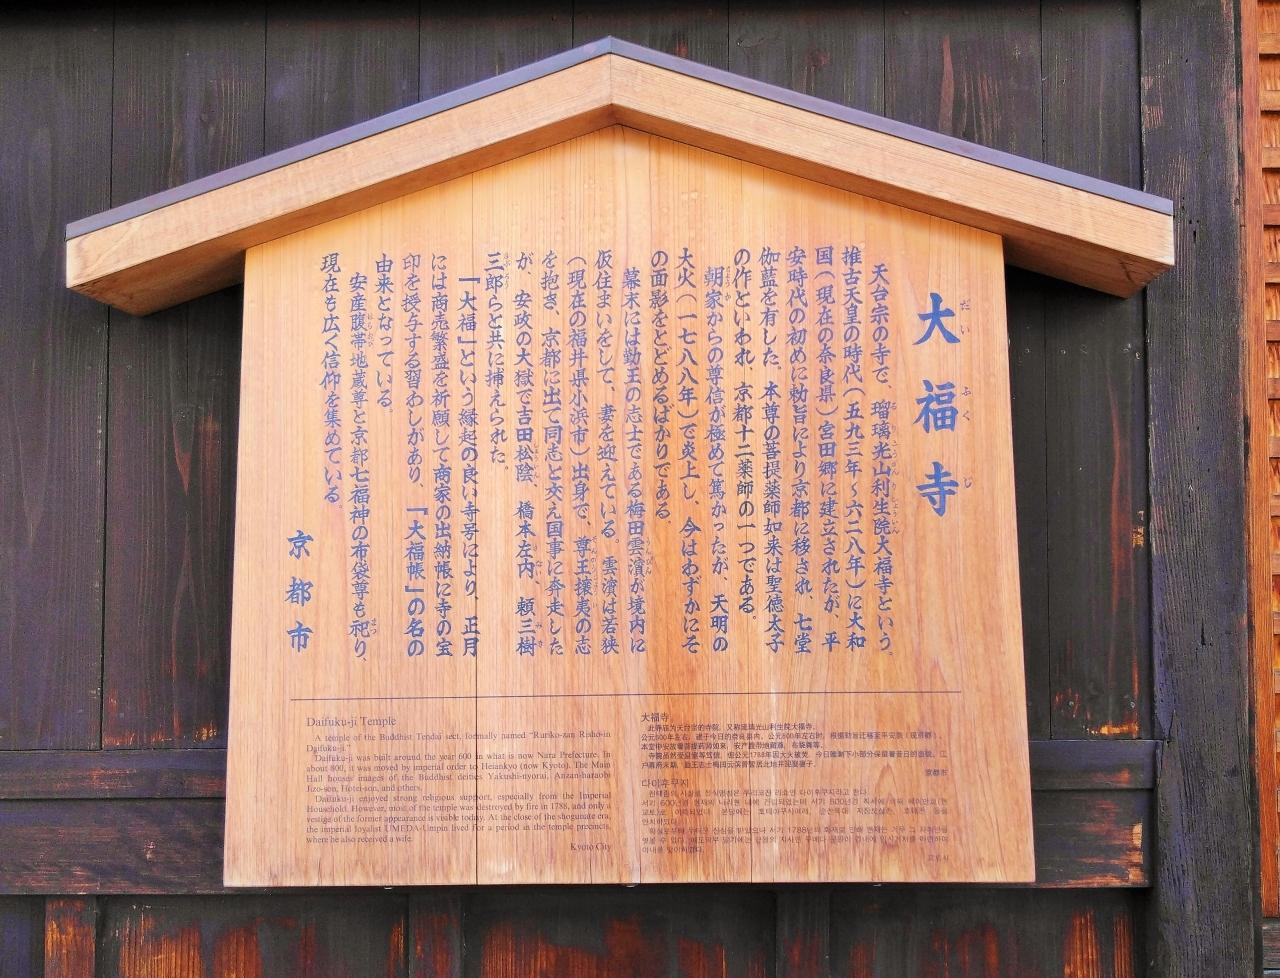 大福寺
天台宗の寺で、瑠璃光山利生院大福寺という。
推古天皇の時代(五九三年~六二八年)に大和
国(現在の奈良県)宮田郷に建立されたが、平
安時代の初めに勅旨により京都に移され、七堂
伽藍を有した。本尊の菩提薬師如来は聖徳太子
の作といわれ、京都十二薬師の一つである。
朝家からの尊信が極めて篤かったが、天明の
大火(一七八八年)で炎上し、今はわずかにそ
の面影をとどめるばかりである。
幕末には勤王の志士である梅田雲濱が境内に
仮住まいをして、妻を迎えている。雲濱は若狭
(現在の福井県小浜市)出身で、尊王攘夷の志
を抱き、京都に出て同志と交え国事に奔走した
が、安政の大獄で吉田松陰、橋本左内、頼三樹
三郎らと共に捕えられた。
「大福」という縁起の良い寺号により、正月
には商売繁盛を祈願して商家の出納帳に寺の宝
印を授与する習わしがあり、「大福帳」の名の
由来となっている。
安産腹帯地蔵尊と京都七福神の布袋尊も祀り、
現在も広く信仰を集めている。
京都市
Daifuku-ji Temple
A temple of the Buddhist Tendai sect, formally named "Ruriko-zan Risho-in
Daifuku-ji."
Daifuku-ji was built around the year 600 in what is now Nara Prefecture. In
about 800, it was moved by imperial order to Heiankyo (now Kyoto). The Main
Hall houses images of the Buddhist deities Yakushi-nyorai, Anzan-haraobi
Jizo-son, Hotei-son, and others.
Daifuku-ji enjoyed strong religious support, especially from the Imperial
Household. However, most of the temple was destroyed by fire in 1788, and only a
vestige of the former appearance is visible today. At the close of the shogunate era,
the imperial loyalist UMEDA-Umpin lived for a period in the temple precincts,
where he also received a wife.
Kyoto City
大福寺
京都市
다이후쿠지
교토시